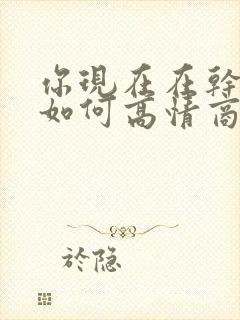 你現在在幹
如何高情商
於隐